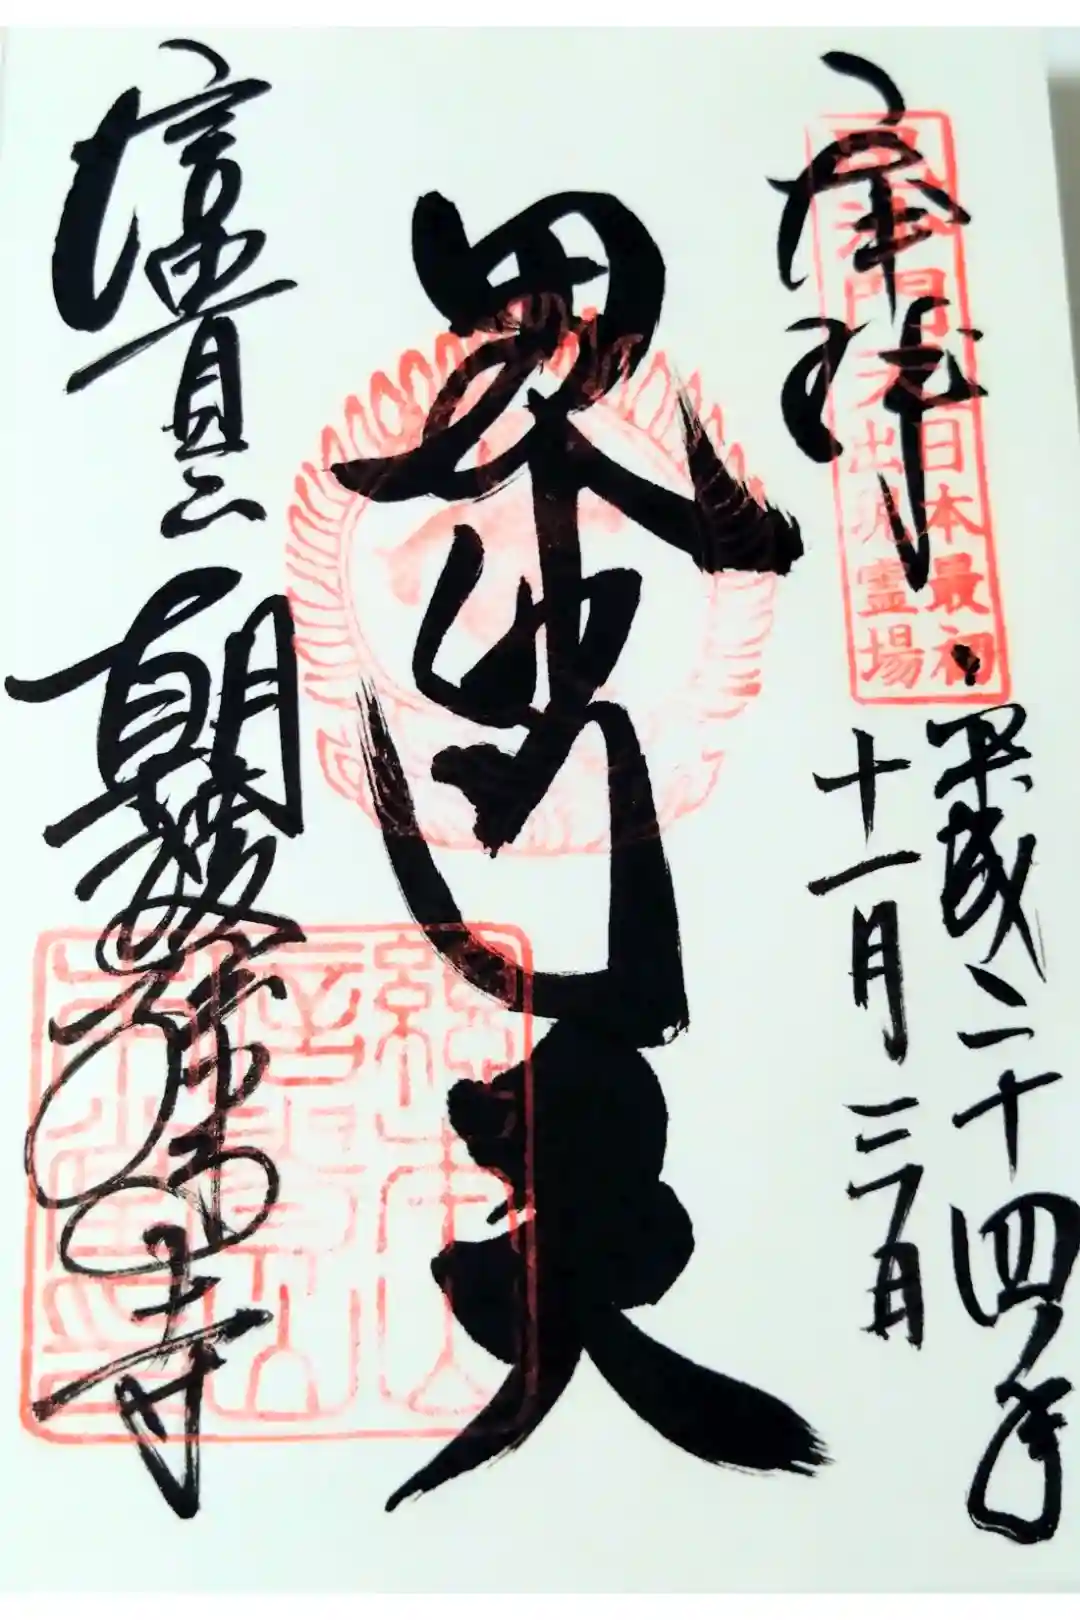 奉拝
毘沙門天出現霊場
日本最初
平成二十四年
十一月三日
毘沙門天
信貴山
朝護孫子寺